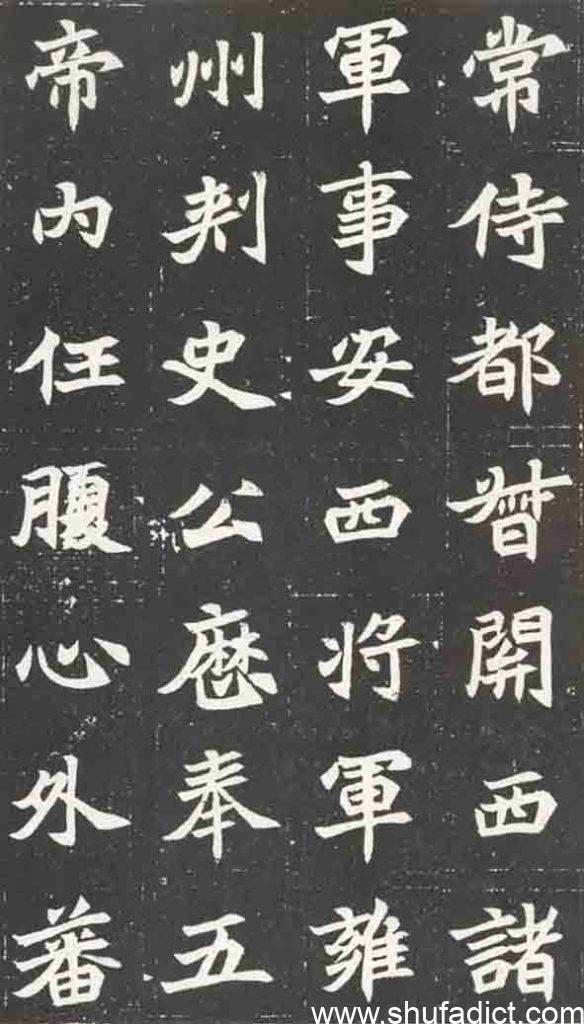 常侍都督開西諸
軍事安西将軍雍
州刾史公歷奉五
帝内任腹心外蕃
www.shufadict.com